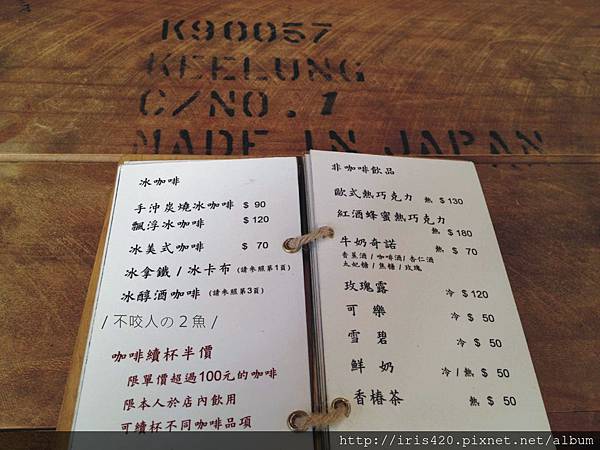 K90057
KEELUNG
C/NO.1
MADE IN JAPAN
冰咖啡
手沖炭燒冰咖啡 $ 90
飄浮冰咖啡 $ 120
冰美式咖啡 $ 70
冰拿鐵 / 冰卡布 (請參照第1頁)
冰醇酒咖啡 (請參照第3頁)
/ 不咬人の2魚 /
咖啡續杯半價
限單價超過100元的咖啡
限本人於店內飲用
可續杯不同咖啡品項
非咖啡飲品
歐式熱巧克力 熱 $ 130
紅酒蜂蜜熱巧克力
熱 $ 180
牛奶奇諾 熱 $ 70
香蕉酒 / 咖啡酒 / 杏仁酒
太妃糖 / 焦糖 / 玫瑰
玫瑰露 冷 $ 120
可樂 冷 $ 50
雪碧 冷 $ 50
鮮奶 冷 / 熱 $ 50
香椿茶 熱 $ 50
http://iris420.pixnet.net/album